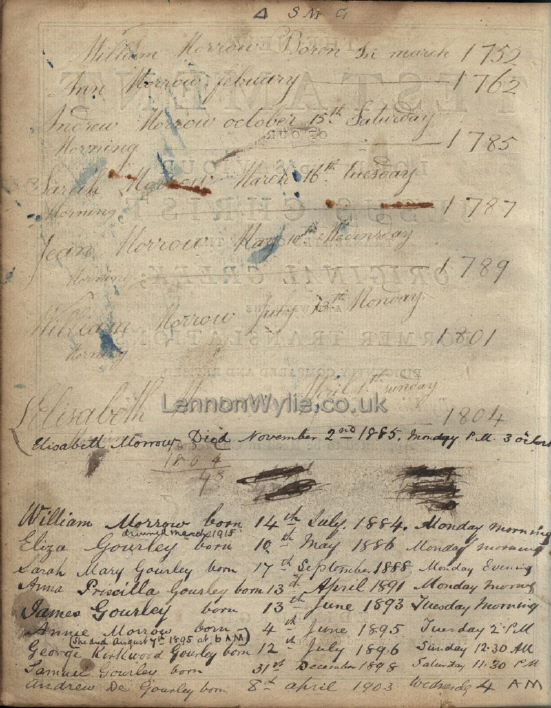 S M G
William Morrow Born 1st march 1752
Ann Morrow febuary 1762
Andrew Morrow october 15th Saturday
Morning 1785
Sarah March 16th tuesday
Morning 1787
Jean Morrow
Morning 1789
William Morrow July 13th Monday
Morning 1801
Elizabeth April 1st sunday
1804
LennonWylie.co.uk
Elisabeth Morrow Died November 2nd 1885. Monday P.M. 3 o'clock
1804
William Morrow born 14th July. 1884. Monday morning
drowned march 1915
Eliza Gourley born 10th May 1886 Monday morning
Sarah Mary Gourley born 17th September 1888 Monday Evening
Anna Priscilla Gourley born 13th April 1891 Monday morng
James Gourley born 13th June 1893 Tuesday Morning
Annie Morrow born 4th June 1895 Tuesday 2 P.M
She died August 7th 1895 at 6 AM
George Kirkwood Gourley born 12th July 1896 Sunday 12-30 AM
Samuel Gourley born 31st December 1898 Saturday 11:30 P.M
Andrew De Gourley born 8th april 1903 Wednesday 4 AM